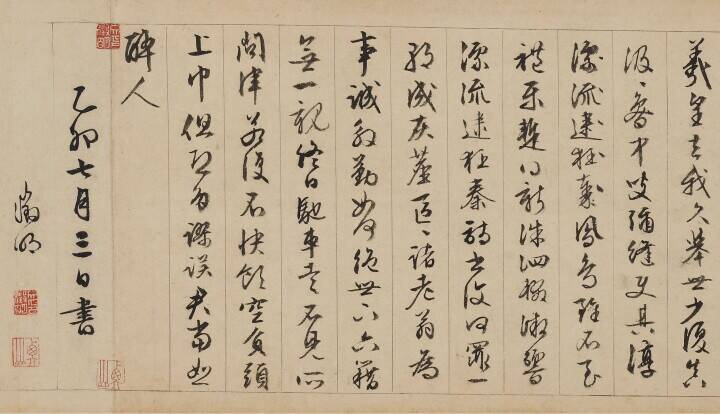 羲皇去我久舉世少復真
汲〻魯中叟彌縫使其淳
漂流逮狂秦鳳鳥雖不至
禮樂暫得新洙泗輟微響
漂流逮狂秦詩書復何罪一
朝成灰塵區〻諸老翁為
事誠殷勤如何絕世下六籍
無一親終日馳車走不見所
問津若復不快飲空負頭
上巾但恨多謬誤君當恕
醉人
乙卯七月三日書
徵明